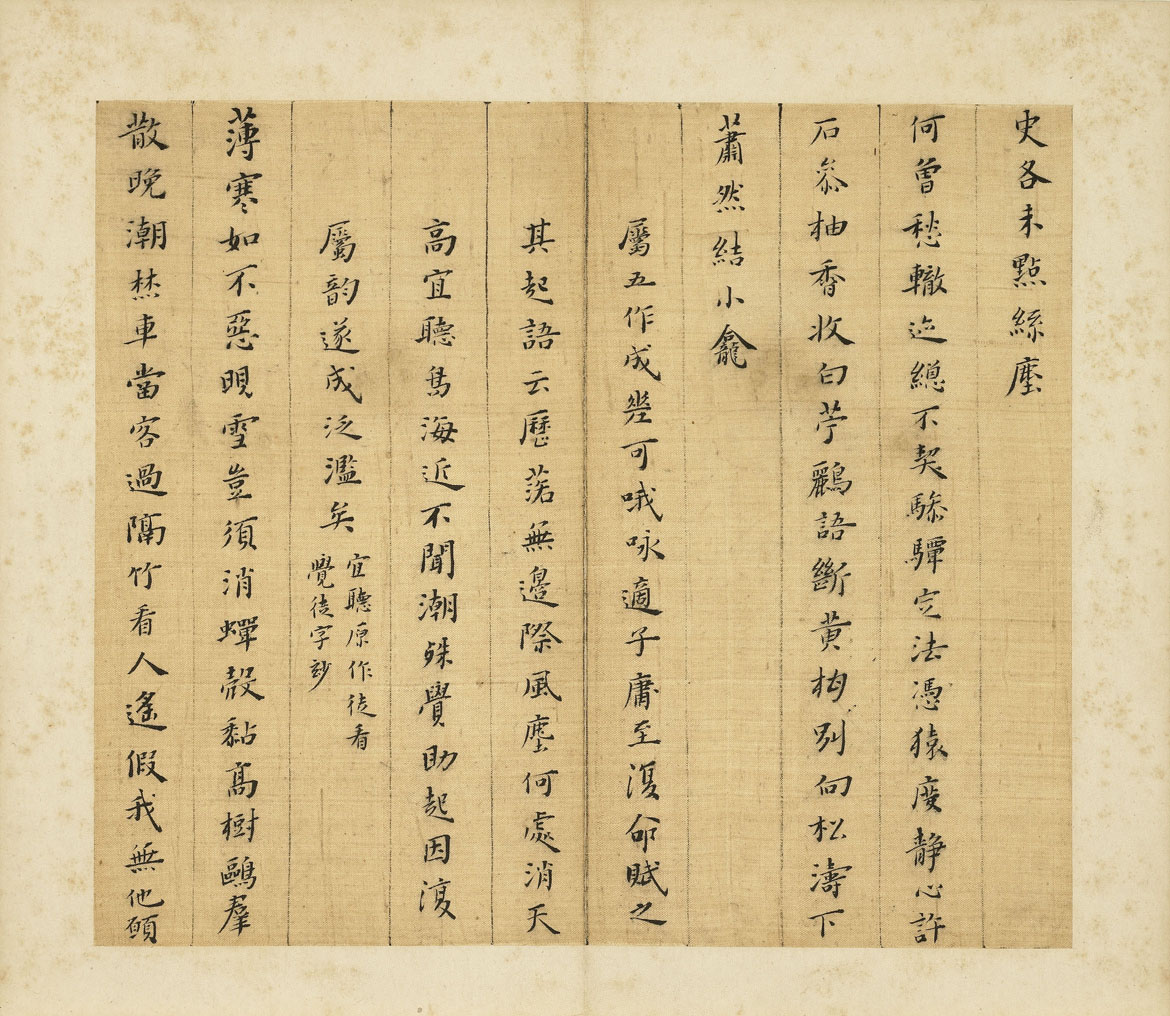 史各未點絲塵
何曾愁轍迹總不契驂驔定法憑猿度静心許
石參柚香收白苧鸝語斷黄梅別向松濤下
蕭然結小龕
屬五作成甚可哦咏適子庸至復命賦之
其起語云歷落無邊際風塵何處消天
高宜聽鳥海近不聞潮殊覺助起因復
屬韵遂成泛濫矣
宜聽原作徒看
覺徒字玅
薄寒如不惡晛雪豈須消蟬殼黏高樹鷗羣
散晚潮焚車當客過隔竹看人遙假我無他願